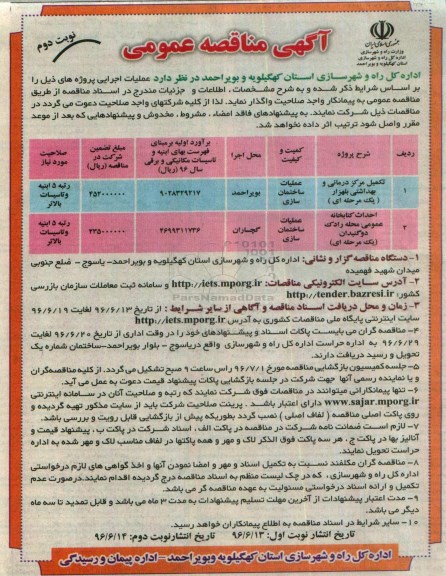 نوبت دوم
آگهی مناقصه عمومی
جمهوری اسلامی ایران
وزارت راه و شهرسازی
اداره کل راه و شهرسازی
استان کهگیلویه و بویراحمد
اداره کل راه و شهرسازی استان کهگیلویه و بویراحمد در نظر دارد عملیات اجرایی پروژه های ذیل را
بر اساس شرایط ذکر شده و به شرح مشخصات ، اطلاعات و جزئیات مندرج در اسناد مناقصه از طریق
مناقصه عمومی به پیمانکار واجد صلاحیت واگذار نماید. لذا از کلیه شرکتهای واجد صلاحیت دعوت می گردد در
مناقصات ذیل شرکت نمایند. به پیشنهادهای فاقد امضاء ، مشروط ، مخدوش و پیشنهادهایی که بعد از موعد
مقرر واصل شود ترتیب اثر داده نخواهد شد.
ردیف شرح پروژه کمیت و کیفیت محل اجرا برآورد اولیه برمبنای فهرست بهای ابنیه و تاسیسات مکانیکی و برقی سال ۹۶ (ریال) مبلغ تضمین شرکت در مناقصه (ریال) صلاحیت مورد نیاز
۱ تکمیل مرکز درمانی و بهداشتی بلهزار (یک مرحله ای) عملیات ساختمان سازی بویراحمد ۹۰۲۸۳۳۹۲۱۷ ۴۵۲۰۰۰۰۰۰ رتبه ۵ ابنیه وتاسیسات بالاتر
۲ احداث کتابخانه عمومی محله رادک دوگنبدان (یک مرحله ای) عملیات ساختمان سازی گچساران ۴۶۹۹۳۱۱۷۳۶ ۲۳۵۰۰۰۰۰۰ رتبه ۵ ابنیه وتاسیسات بالاتر
۱- دستگاه مناقصه گزار و نشانی: اداره کل راه و شهرسازی استان کهگیلویه و بویراحمد- یاسوج - ضلع جنوبی
میدان شهید فهمیده
۲- آدرس سایت الکترونیکی مناقصات: http://iets.mporg.ir و سامانه ثبت معاملات سازمان بازرسی
کشور: http://tender.bazresi.ir
۳- زمان و محل دریافت اسناد مناقصه و آگاهی از سایر شرایط : از تاریخ ۹۶/۶/۱۳ لغایت ۹۶/۶/۱۹
سایت اینترنتی پایگاه ملی مناقصات کشوری به آدرس http://iets.mporg.ir
۴- مناقصه گران می بایست پاکات اسناد و پیشنهادهای خود را در وقت اداری از تاریخ ۹۶/۶/۲۰ لغایت
۹۶/۶/۲۹ به اداره حراست اداره کل راه و شهرسازی واقع دریاسوج - بلوار بویراحمد-ساختمان شماره یک
تحویل و رسید دریافت دارند.
۵- جلسه کمیسیون بازگشایی مناقصه مورخ ۹۶/۷/۱ راس ساعت ۹ صبح تشکیل می گردد. از کلیه مناقصه گران
و یا نماینده رسمی آنها جهت شرکت در جلسه بازگشایی پاکات پیشنهاد قیمت دعوت به عمل می آید.
۶- تنها پیمانکارانی میتوانند در مناقصات فوق شرکت نمایند که رتبه و صلاحیت آنان در سامانه اینترنتی
www.sajar.mporg.ir دارای اعتبار باشد . پرینت صلاحیت شرکت باید از سایت مذکور تهیه گردیده و
روی پاکت اصلی مناقصه ( لفاف اصلی ) نصب گردد بطوریکه پیش از بازگشایی قابل رویت و بررسی باشد.
۷- لازم است ضمانت نامه شرکت در مناقصه در پاکت الف ، اسناد شرکت در پاکت ب ، پیشنهاد قیمت و
آنالیز بها در پاکت ج ، هر سه پاکت فوق الذکر لاک و مهر و همه پاکتها در لفاف مناسب لاک و مهر شده به اداره
حراست تحویل نمایند.
۸- مناقصه گران مکلفند نسبت به تکمیل اسناد و مهر و امضا نمودن آنها و اخذ گواهی های لازم درخواستی
اداره کل راه و شهرسازی ، که در چک لیست منظم به اسناد مناقصه درج گردیده اقدام نمایند.درصورت عدم
تکمیل و ارائه اسناد درخواستی مسئولیت به عهده مناقصه گر می باشد.
۹- مدت اعتبار پیشنهادات از آخرین مهلت تسلیم پیشنهادات به مدت ۳ ماه می باشد و قابل تمدید تا سه ماه
دیگر می باشد.
۱۰- سایر شرایط در اسناد مناقصه به اطلاع پیمانکاران خواهد رسید.
تاریخ انتشار نوبت اول: ۹۶/۶/۱۳ تاریخ انتشارنوبت دوم: ۹۶/۶/۱۴
اداره کل راه و شهرسازی استان کهگیلویه وبویراحمد - اداره پیمان و رسیدگی